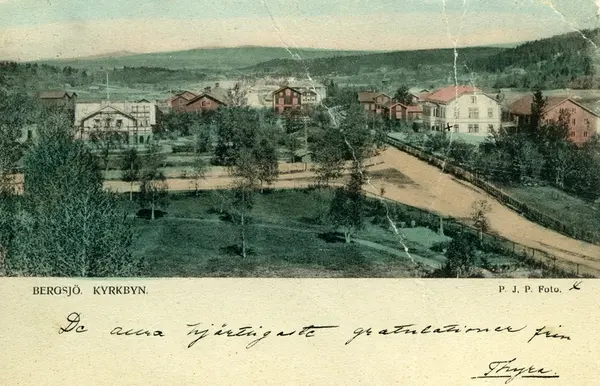 BERGSJÖ. KYRKBYN.
P. J. P. Foto.
De aura hjärtligaste gratulationer från
Thyra.